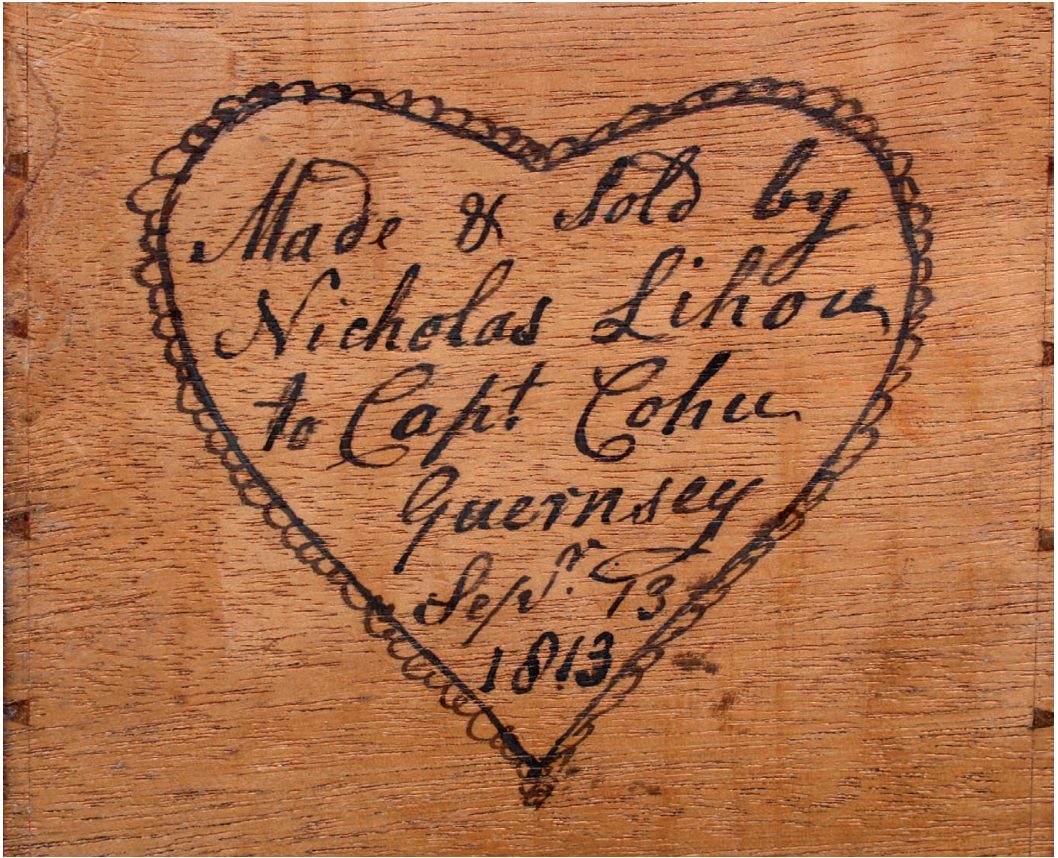 Made & Sold by
Nicholas Lihou
to Capt. Cohu
Guernsey
Sepr. 13
1813